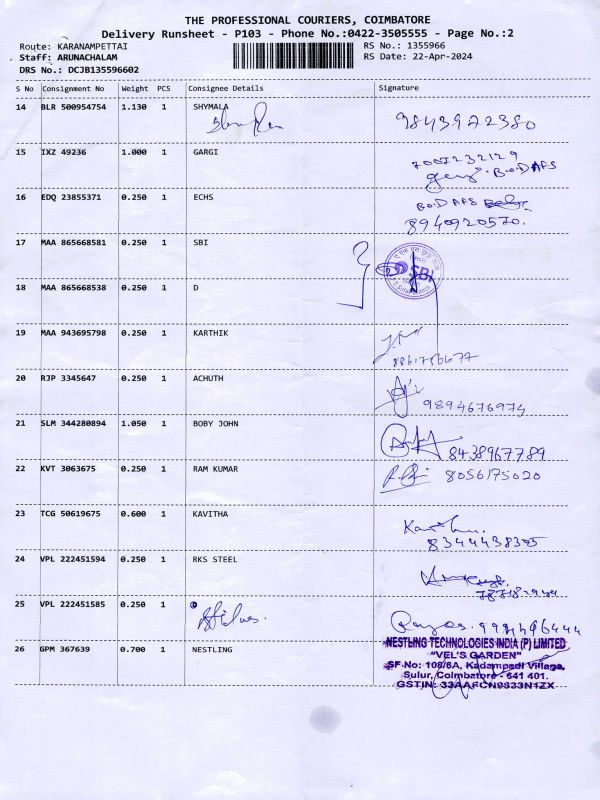 THE PROFESSIONAL COURIERS, COIMBATORE
Delivery Runsheet - P103 - Phone No.:0422-3505555 - Page No.:2
Route: KARANAMPETTAI
Staff: ARUNACHALAM
DRS No.: DCJB135596602
RS No.: 1355966
RS Date: 22-Apr-2024
S No Consignment No Weight PCS Consignee Details Signature
14 BLR 500954754 1.130 1 SHYMALA 9843922380
15 IXZ 49236 1.000 1 GARGI
B.O.D AFS
16 EDQ 23855371 0.250 1 ECHS B.O.D AFS
8940920570.
17 MAA 865668581 0.250 1 SBI
SBI
18 MAA 865668538 0.250 1 D
19 MAA 943695798 0.250 1 KARTHIK
20 RJP 3345647 0.250 1 ACHUTH
9894676974
21 SLM 344280894 1.050 1 BOBY JOHN
8438967789
22 KVT 3063675 0.250 1 RAM KUMAR 8056175020
23 TCG 50619675 0.600 1 KAVITHA
8344438385
24 VPL 222451594 0.250 1 RKS STEEL
25 VPL 222451585 0.250 1
26 GPM 367639 0.700 1 NESTLING
NESTLING TECHNOLOGIES INDIA (P) LIMITED
"VEL'S GARDEN"
SF No: 108/6A, Kadampadi Village,
Sulur, Coimbatore - 641 401.
GSTIN: 33AAFCN9833N1ZX